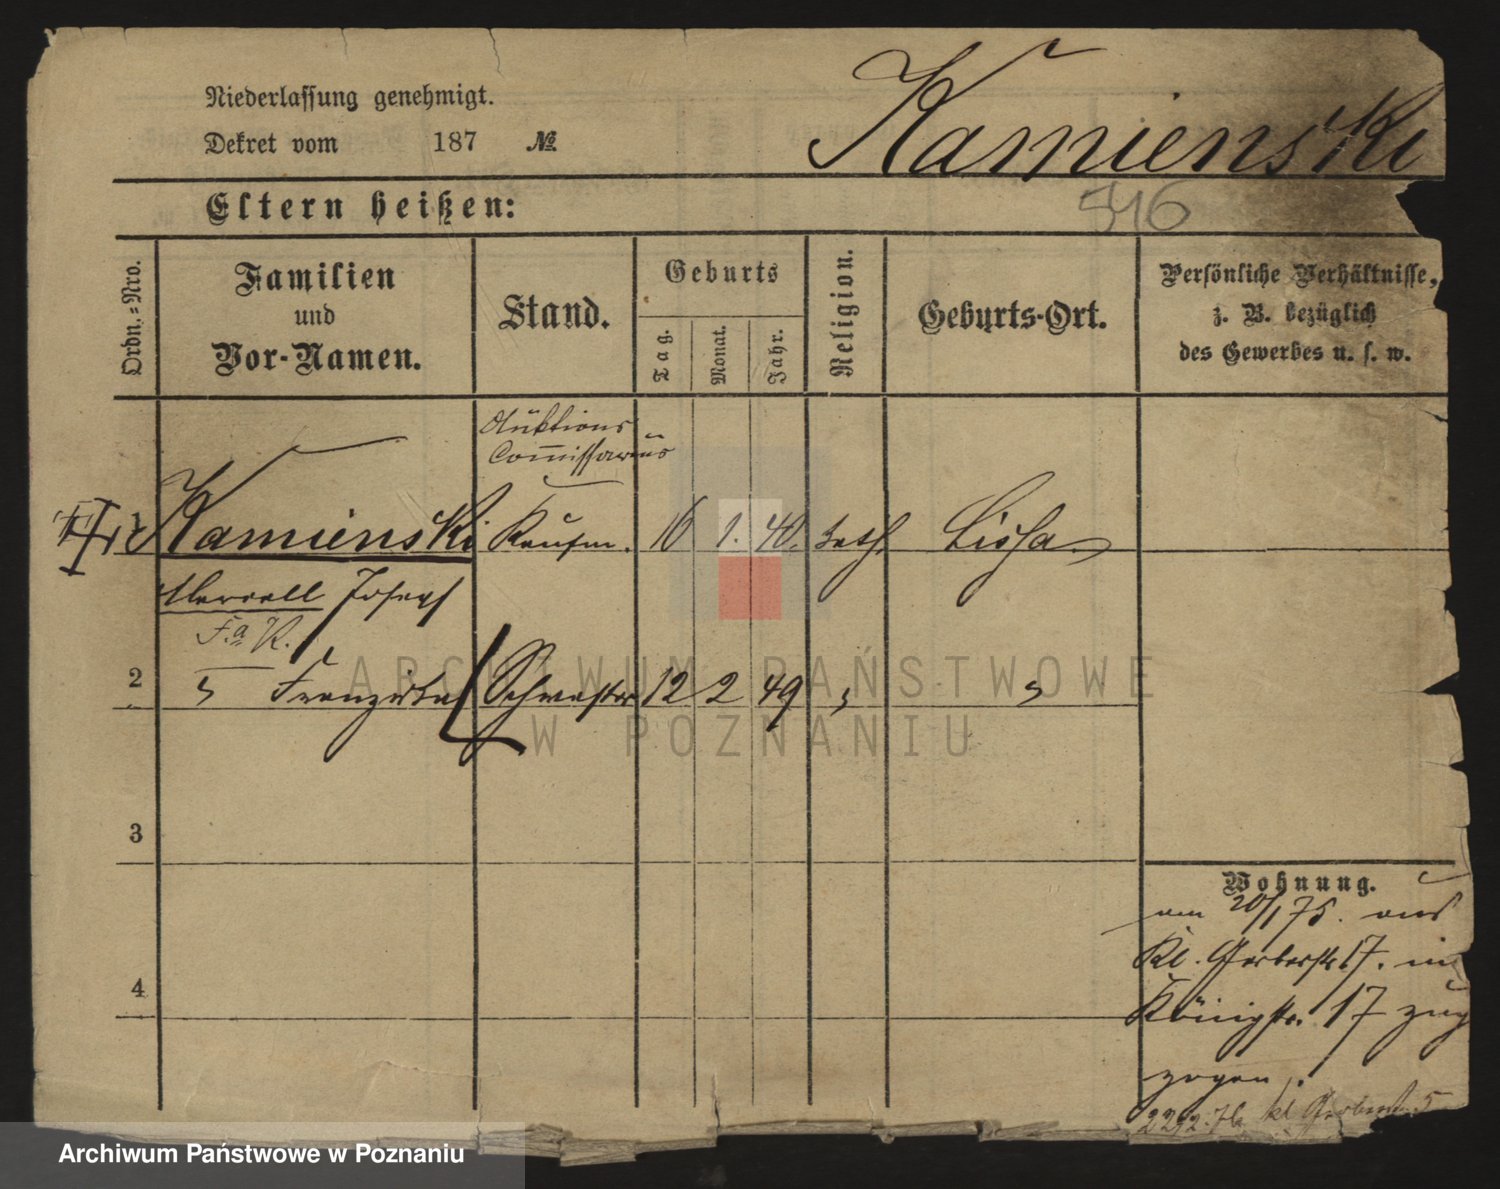 Niederlassung genehmigt.
Dekret vom 187 №
Kamienski
516
Eltern heißen:
Ordn.-Nro.
Familien
und
Vor-Namen.
Stand.
Geburts
Tag.
Monat.
Jahr.
Religion.
Geburts-Ort.
Persönliche Verhältnisse,
z. B. bezüglich
des Gewerbes u. s. w.
Auktions
Commissarius
1 Kamienski Kaufm. 16 1. 40. kath. Lissa
Marcell Joseph
F.a K.
2 " Franziska Schwester 12 2 49 " "
3
4
Wohnung.
am 20/1 75. aus
Kl. Gerberstr. 17. in
Königstr. 17 zuge
zogen.
kl Gerberstr. 5
ARCHIWUM PAŃSTWOWE
W POZNANIU
Archiwum Państwowe w Poznaniu